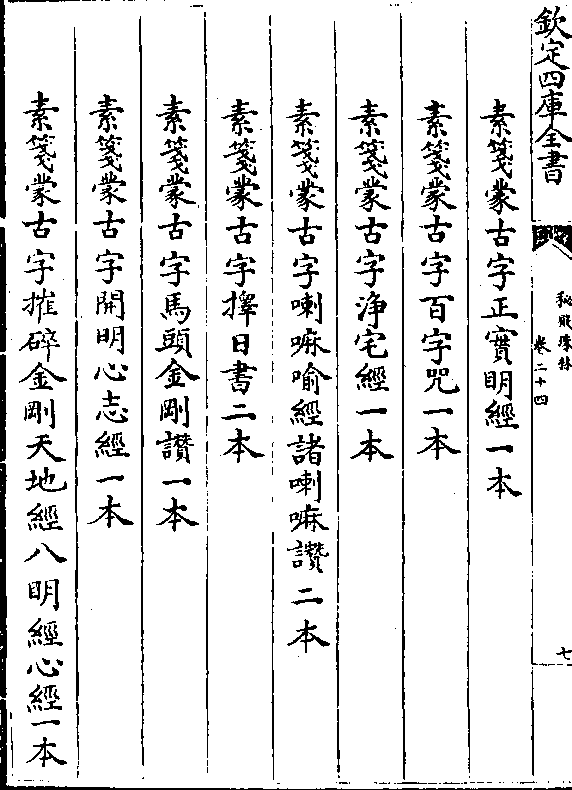 欽定四庫全書
秘殿珠林
卷二十四
七
素箋蒙古字正實明經一本
素箋蒙古字百字咒一本
素箋蒙古字淨宅經一本
素箋蒙古字喇嘛喻經諸喇嘛讚二本
素箋蒙古字擇日書二本
素箋蒙古字馬頭金剛讚一本
素箋蒙古字開明心志經一本
素箋蒙古字摧碎金剛天地經八明經心經一本